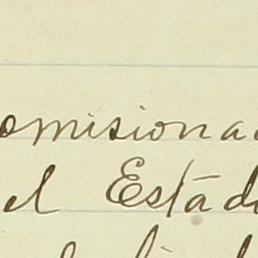 omisiona
el Estad